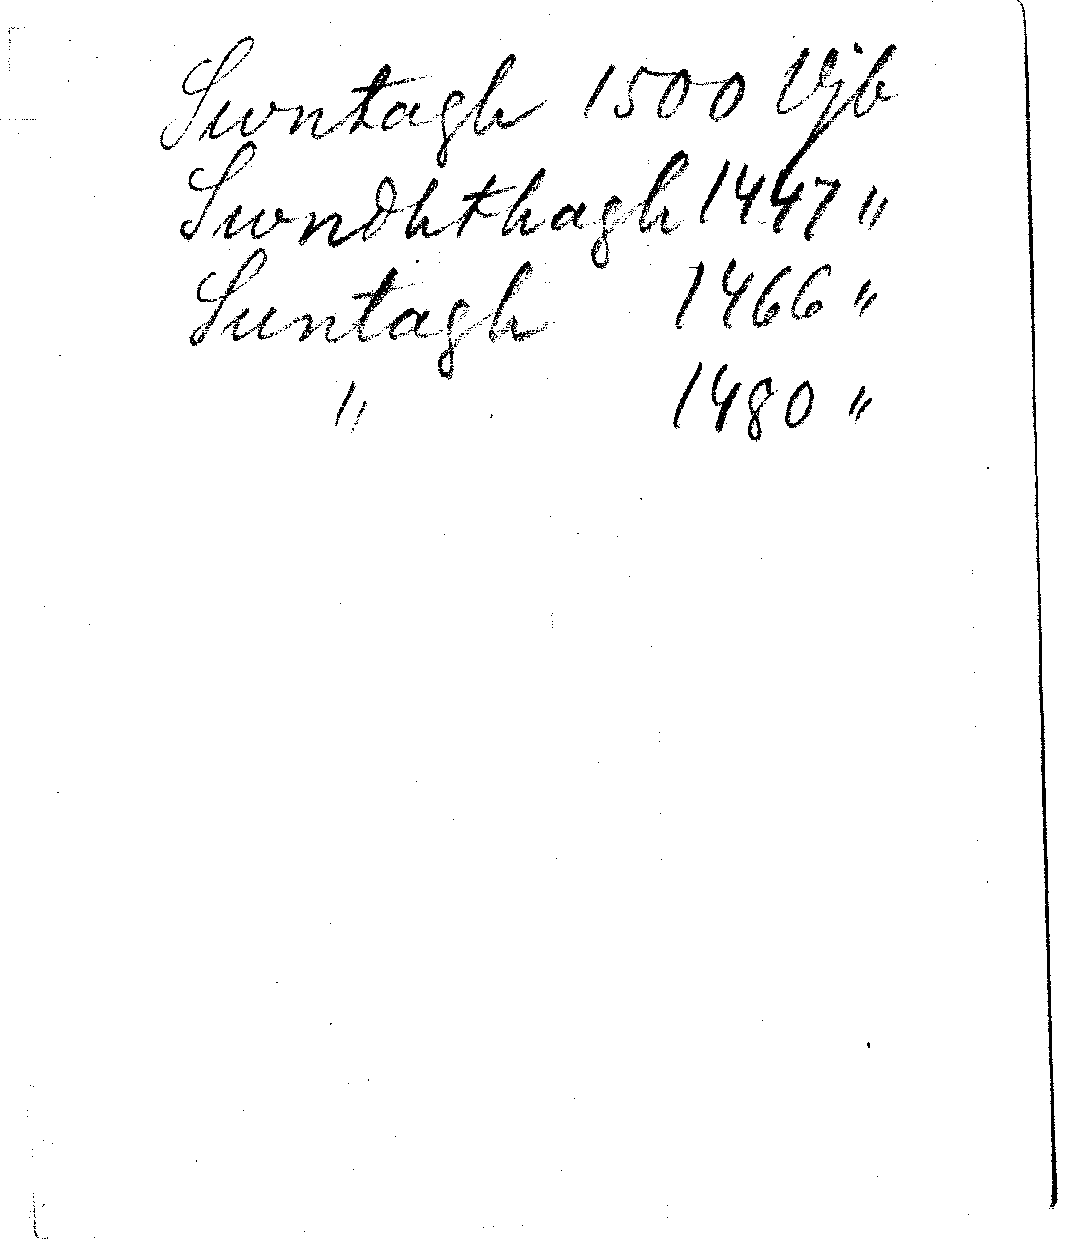 Swntagh 1500 Vjb
Swndhthagh 1447 "
Suntagh 1466 "
" 1480 "